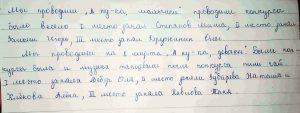 Мы проводили „А ну-ка мальчики“ проводили конкурсы
Было весело I место занял Степанов Дима, II место занял
Игорь, III место занял Олег.
Мы проводили на 8 марта „А ну-ка, девочки“ Были кон-
курсы была и музыка танцевали после конкурса пили чай.
I место заняла Оля, II место заняли Зубарева Наташа и
Алёна, III место заняла